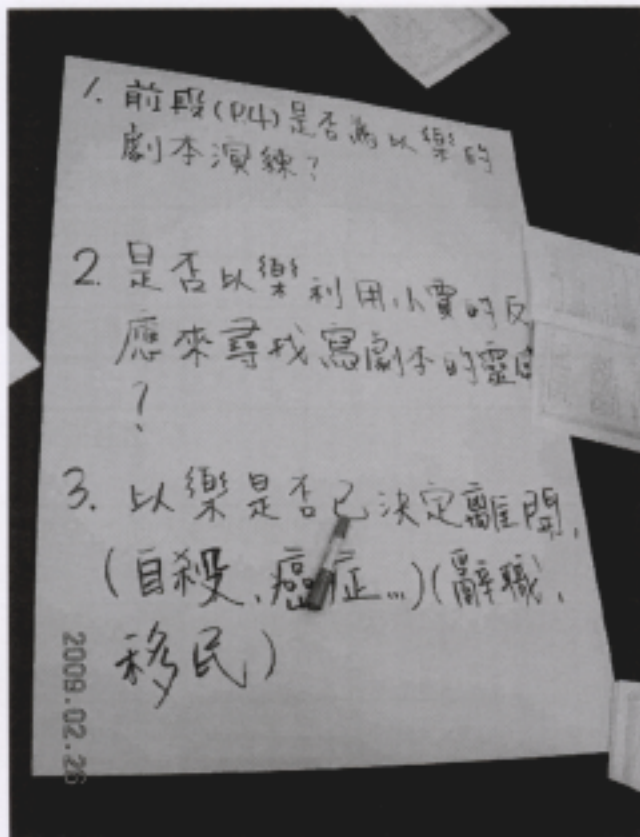 1. 前段(P4)是否為以樂的
劇本演練?
2. 是否以樂利用小寶的反
應來尋找寫劇本的靈
?
3. 以樂是否已決定離開,
(自殺、癌症...)(辭職、
移民)
2009.02.26